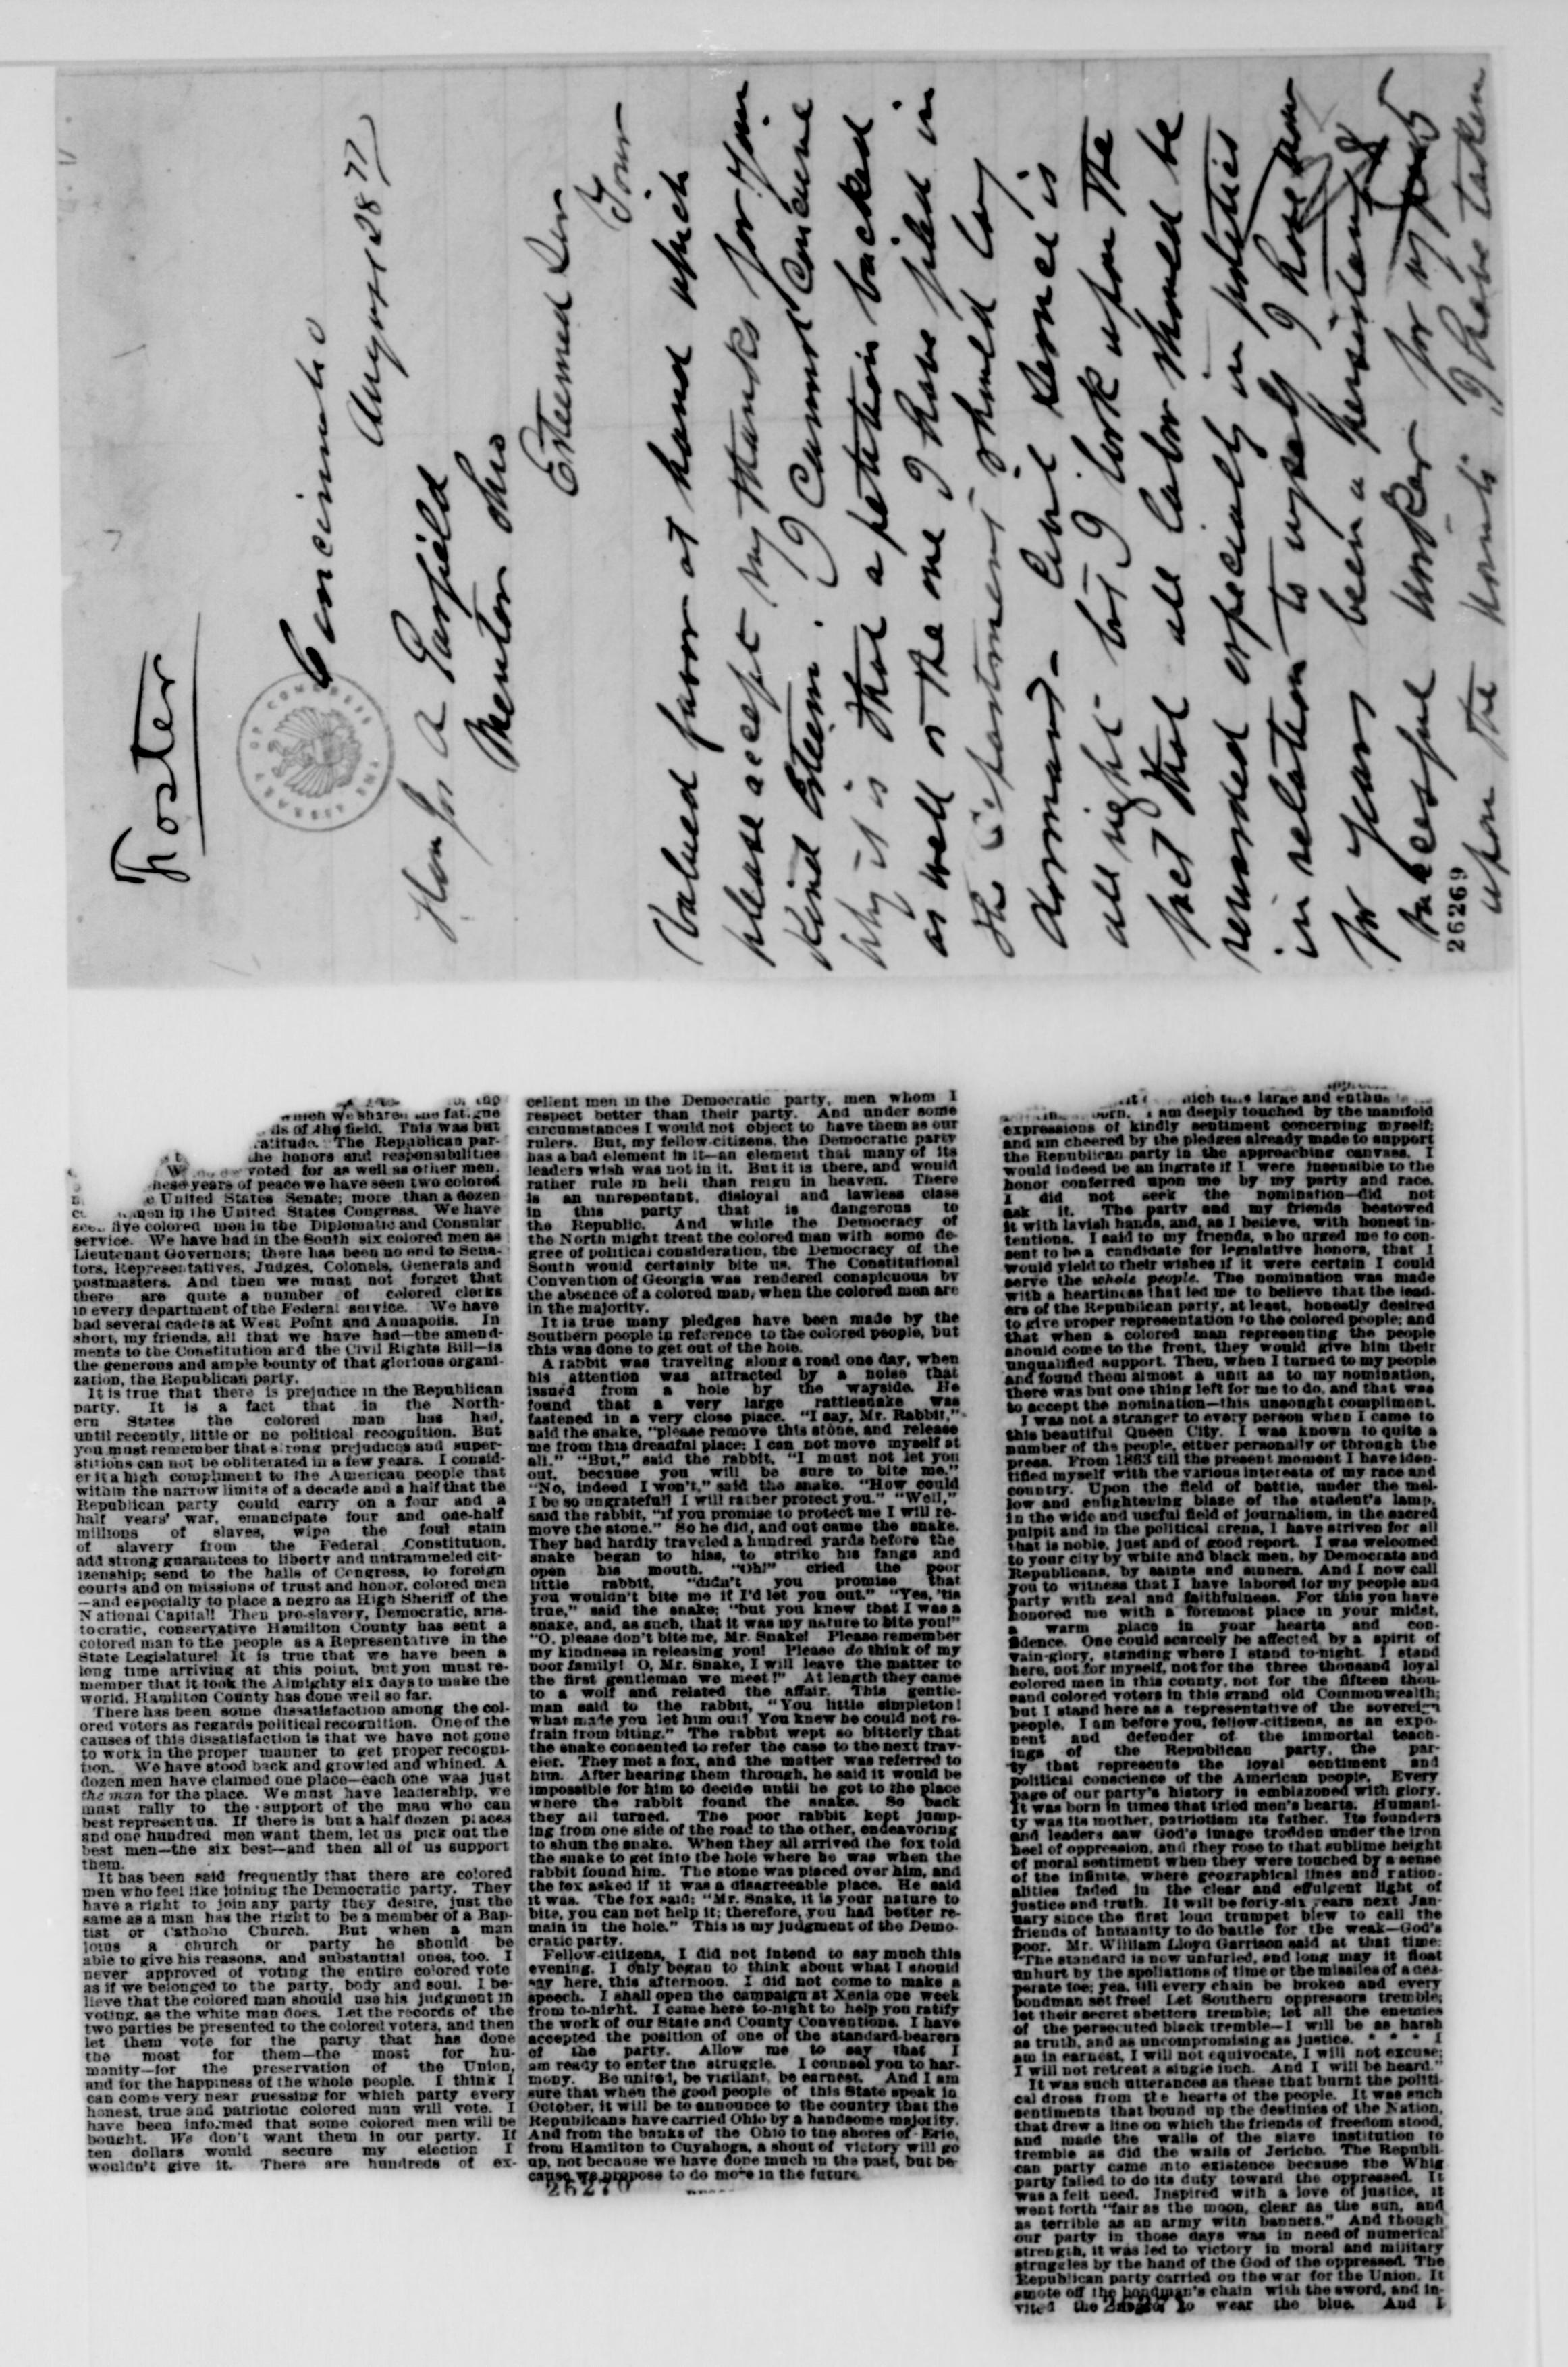 Foster
LIBRARY OF CONGRESS
Cincinnati O
August 28 77
Hon Jas A Garfield
Mentor Ohio
Esteemed Sir
Your
Valued favor at hand which
please accept my thanks for your
kind Esteem. I cannot conceive
why it is that a petition backed
as well as the one I have filed in
the Department should lay
dormant- Civil Service is
all right - but I look upon the
fact that all labor should be
rewarded especially in politics
in relation to myself I have now
for years been a persistent &
successful worker for up
26269
upon the I have taken
which we shared the fatigue
of the field. This was but
The Republican par-
the honors and responsibilities
voted for as well as other men.
years of peace we have seen two colored
United States Senate; more than a dozen
in the United States Congress. We have
five colored men in the Diplomatic and Consular
service. We have had in the South six colored men as
Lieutenant Governors; there has been no end to Sena-
tors, Representatives, Judges, Colonels, Generals and
postmasters. And then we must not forget that
there are quite a number of colored clerks
in every department of the Federal service. We have
had several cadets at West Point and Annapolis. In
short, my friends, all that we have had—the amend-
ments to the Constitution and the Civil Rights Bill—is
the generous and ample bounty of that glorious organi-
zation, the Republican party.
It is true that there is prejudice in the Republican
party. It is a fact that in the North-
ern States the colored man has had,
until recently, little or no political recognition. But
you must remember that strong prejudices and super-
stitions can not be obliterated in a few years. I consid-
er it a high compliment to the American people that
within the narrow limits of a decade and a half that the
Republican party could carry on a four and a
half years' war, emancipate four and one-half
millions of slaves, wipe the foul stain
of slavery from the Federal Constitution,
add strong guarantees to liberty and untrammeled cit-
izenship; send to the halls of Congress, to foreign
courts and on missions of trust and honor, colored men
—and especially to place a negro as High Sheriff of the
National Capital! Then pro-slavery, Democratic, aris-
tocratic, conservative Hamilton County has sent a
colored man to the people as a Representative in the
State Legislature! It is true that we have been a
long time arriving at this point, but you must re-
member that it took the Almighty six days to make the
world. Hamilton County has done well so far.
There has been some dissatisfaction among the col-
ored voters as regards political recognition. One of the
causes of this dissatisfaction is that we have not gone
to work in the proper manner to get proper recogni-
tion. We have stood back and growled and whined. A
dozen men have claimed one place—each one was just
the man for the place. We must have leadership, we
must rally to the support of the man who can
best represent us. If there is but a half dozen places
and one hundred men want them, let us pick out the
best men—the six best—and then all of us support
them.
It has been said frequently that there are colored
men who feel like joining the Democratic party. They
have a right to join any party they desire, just the
same as a man has the right to be a member of a Bap-
tist or Catholic Church. But when a man
joins a church or party he should be
able to give his reasons, and substantial ones, too. I
never approved of voting the entire colored vote
as if we belonged to the party, body and soul. I be-
lieve that the colored man should use his judgment in
voting, as the white man does. Let the records of the
two parties be presented to the colored voters, and then
let them vote for the party that has done
the most for them—the most for hu-
manity—for the preservation of the Union,
and for the happiness of the whole people. I think I
can come very near guessing for which party every
honest, true and patriotic colored man will vote. I
have been informed that some colored men will be
bought. We don't want them in our party. If
ten dollars would secure my election I
wouldn't give it. There are hundreds of ex-
cellent men in the Democratic party, men whom I
respect better than their party. And under some
circumstances I would not object to have them as our
rulers. But, my fellow-citizens, the Democratic party
has a bad element in it—an element that many of its
leaders wish was not in it. But it is there, and would
rather rule in hell than reign in heaven. There
is an unrepentant, disloyal and lawless class
in this party that is dangerous to
the Republic. And while the Democracy of
the North might treat the colored man with some de-
gree of political consideration, the Democracy of the
South would certainly bite us. The Constitutional
Convention of Georgia was rendered conspicuous by
the absence of a colored man, when the colored men are
in the majority.
It is true many pledges have been made by the
Southern people in reference to the colored people, but
this was done to get out of the hole.
A rabbit was traveling along a road one day, when
his attention was attracted by a noise that
issued from a hole by the wayside. He
found that a very large rattlesnake was
fastened in a very close place. "I say, Mr. Rabbit,"
said the snake, "please remove this stone, and release
me from this dreadful place; I can not move myself at
all." "But," said the rabbit, "I must not let you
out, because you will be sure to bite me."
"No, indeed I won't," said the snake. "How could
I be so ungrateful! I will rather protect you." "Well,"
said the rabbit, "if you promise to protect me I will re-
move the stone." So he did, and out came the snake.
They had hardly traveled a hundred yards before the
snake began to hiss, to strike his fangs and
open his mouth. "Oh!" cried the poor
little rabbit, "didn't you promise that
you wouldn't bite me if I'd let you out." "Yes, 'tis
true," said the snake; "but you knew that I was a
snake, and, as such, that it was my nature to bite you!"
"O, please don't bite me, Mr. Snake! Please remember
my kindness in releasing you! Please do think of my
poor family! O, Mr. Snake, I will leave the matter to
the first gentleman we meet!" At length they came
to a wolf and related the affair. This gentle-
man said to the rabbit, "You little simpleton!
what made you let him out? You knew he could not re-
frain from biting." The rabbit wept so bitterly that
the snake consented to refer the case to the next trav-
eler. They met a fox, and the matter was referred to
him. After hearing them through, he said it would be
impossible for him to decide until he got to the place
where the rabbit found the snake. So back
they all turned. The poor rabbit kept jump-
ing from one side of the road to the other, endeavoring
to shun the snake. When they all arrived the fox told
the snake to get into the hole where he was when the
rabbit found him. The stone was placed over him, and
the fox asked if it was a disagreeable place. He said
it was. The fox said: "Mr. Snake, it is your nature to
bite, you can not help it; therefore, you had better re-
main in the hole." This is my judgment of the Demo-
cratic party.
Fellow-citizens, I did not intend to say much this
evening. I only began to think about what I should
say here, this afternoon. I did not come to make a
speech. I shall open the campaign at Xenia one week
from to-night. I came here to-night to help you ratify
the work of our State and County Conventions. I have
accepted the position of one of the standard-bearers
of the party. Allow me to say that I
am ready to enter the struggle. I counsel you to har-
mony. Be united, be vigilant, be earnest. And I am
sure that when the good people of this State speak in
October, it will be to announce to the country that the
Republicans have carried Ohio by a handsome majority.
And from the banks of the Ohio to the shores of Erie,
from Hamilton to Cuyahoga, a shout of victory will go
up, not because we have done much in the past, but be-
cause we propose to do more in the future.
26270
large and
I am deeply touched by the manifold
expressions of kindly sentiment concerning myself;
and am cheered by the pledges already made to support
the Republican party in the approaching canvass. I
would indeed be an ingrate if I were insensible to the
honor conferred upon me by my party and race.
I did not seek the nomination—did not
ask it. The party and my friends bestowed
it with lavish hands, and, as I believe, with honest in-
tentions. I said to my friends, who urged me to con-
sent to be a candidate for legislative honors, that I
would yield to their wishes if it were certain I could
serve the whole people. The nomination was made
with a heartiness that led me to believe that the lead-
ers of the Republican party, at least, honestly desired
to give proper representation to the colored people; and
that when a colored man representing the people
should come to the front, they would give him their
unqualified support. Then, when I turned to my people
and found them almost a unit as to my nomination,
there was but one thing left for me to do, and that was
to accept the nomination—this unsought compliment.
I was not a stranger to every person when I came to
this beautiful Queen City. I was known to quite a
number of the people, either personally or through the
press. From 1863 till the present moment I have iden-
tified myself with the various interests of my race and
country. Upon the field of battle, under the mel-
low and enlightening blaze of the student's lamp,
in the wide and useful field of journalism, in the sacred
pulpit and in the political arena, I have striven for all
that is noble, just and of good report. I was welcomed
to your city by white and black men, by Democrats and
Republicans, by saints and sinners. And I now call
you to witness that I have labored for my people and
party with zeal and faithfulness. For this you have
honored me with a foremost place in your midst,
a warm place in your hearts and con-
fidence. One could scarcely be affected by a spirit of
vain-glory, standing where I stand to-night. I stand
here, not for myself, not for the three thousand loyal
colored men in this county, not for the fifteen thou-
sand colored voters in this grand old Commonwealth;
but I stand here as a representative of the sovereign
people. I am before you, fellow-citizens, as an expo-
nent and defender of the immortal teach-
ings of the Republican party, the par-
ty that represents the loyal sentiment and
political conscience of the American people. Every
page of our party's history is emblazoned with glory.
It was born in times that tried men's hearts. Humani-
ty was its mother, patriotism its father. Its founders
and leaders saw God's image trodden under the iron
heel of oppression, and they rose to that sublime height
of moral sentiment when they were touched by a sense
of the infinite, where geographical lines and ration-
alities faded in the clear and effulgent light of
justice and truth. It will be forty-six years next Jan-
uary since the first loud trumpet blew to call the
friends of humanity to do battle for the weak—God's
poor. Mr. William Lloyd Garrison said at that time:
"The standard is now unfurled, and long may it float
unhurt by the spoliations of time or the missiles of a des-
perate foe; yea, till every chain be broken and every
bondman set free! Let Southern oppressors tremble;
let their secret abettors tremble; let all the enemies
of the persecuted black tremble—I will be as harsh
as truth, and as uncompromising as justice. * * * I
am in earnest, I will not equivocate, I will not excuse;
I will not retreat a single inch. And I will be heard."
It was such utterances as these that burnt the politi-
cal dross from the hearts of the people. It was such
sentiments that bound up the destinies of the Nation,
that drew a line on which the friends of freedom stood,
and made the walls of the slave institution to
tremble as did the walls of Jericho. The Republi-
can party came into existence because the Whig
party failed to do its duty toward the oppressed. It
was a felt need. Inspired with a love of justice, it
went forth "fair as the moon, clear as the sun, and
as terrible as an army with banners." And though
our party in those days was in need of numerical
strength, it was led to victory in moral and military
struggles by the hand of the God of the oppressed. The
Republican party carried on the war for the Union. It
smote off the bondman's chain with the sword, and in-
vited the to wear the blue. And I